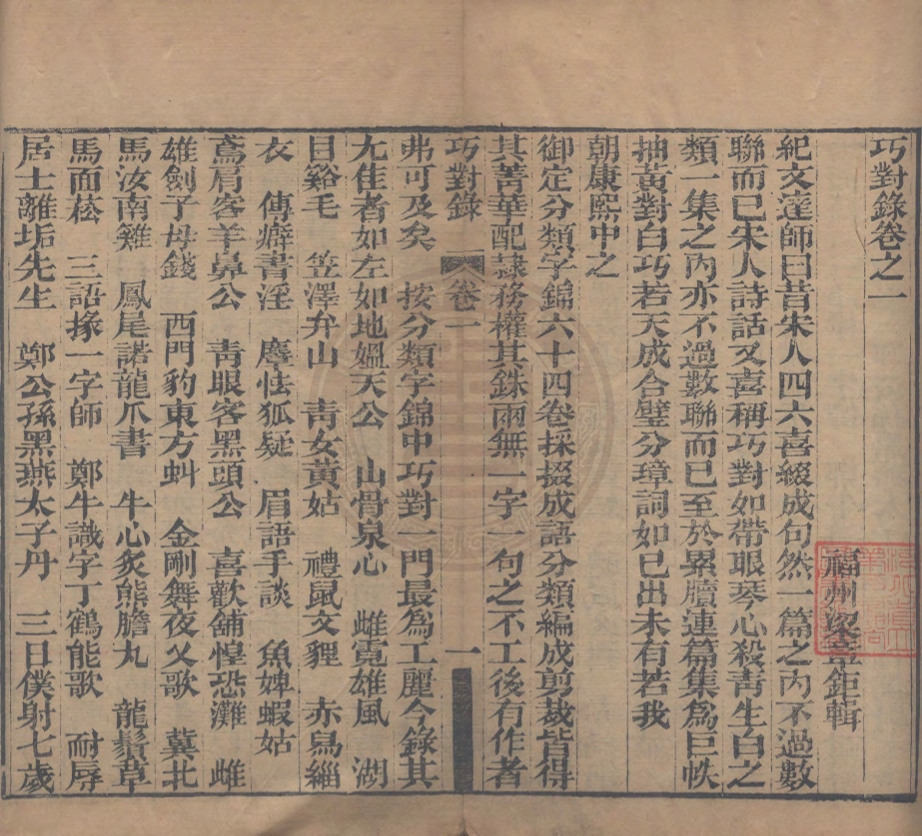 巧對錄卷之一
福州梁章鉅輯
紀文達師曰昔宋人四六喜綴成句然一篇之內不過數
聯而已宋人詩話又喜稱巧對如帶眼琴心殺青生白之
類一集之內亦不過數聯而已至於累牘連篇集爲巨帙
抽黃對白巧若天成合璧分璋詞如已出未有若我
朝康熙中之
御定分類字錦六十四卷採掇成語分類編成剪裁皆得
其菁華配隸務權其銖兩無一字一句之不工後有作者
巧對錄 卷一 一
弗可及矣 按分類字錦中巧對一門最為工麗今錄其
尤佳者如左如地媼天公 山骨泉心 雌霓雄風 湖
目谿毛 笠澤弁山 靑女黃姑 禮鼠文貍 赤舄緇
衣 傳癖書淫 麞怯狐疑 眉語手談 魚婢蝦姑
鳶肩客羊鼻公 靑眼客黑頭公 喜歡舖惶恐灘 雌
雄劍子母錢 西門豹東方虯 金剛舞夜乂歌 冀北
馬汝南雞 鳳尾諾龍爪書 牛心炙熊膽丸 龍鬚草
馬面菘 三語掾一字師 鄭牛識字丁鶴能歌 耐辱
居士離垢先生 鄭公孫黑燕太子丹 三日僕射七歲